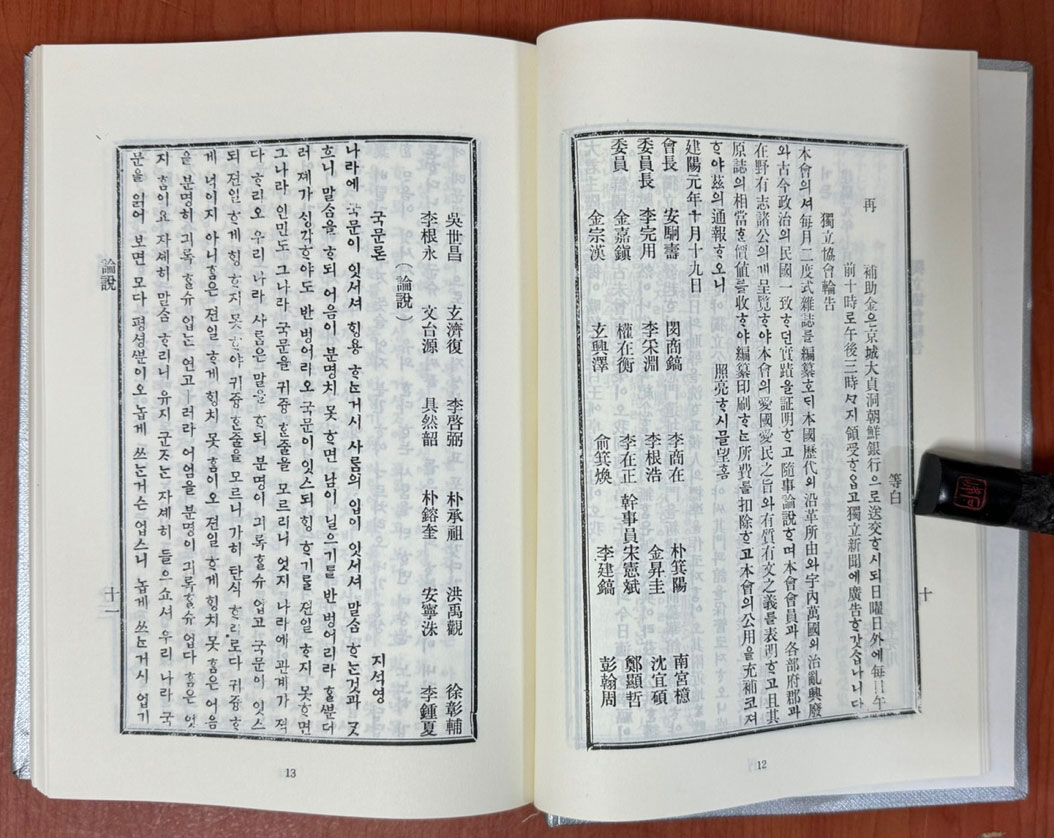 等白
再 補助金은京城大貞洞朝鮮銀行으로送交ᄒᆞ시되日曜日外에每日午
前十時로午後三時ᄭᆞ지領受ᄒᆞ압고獨立新聞에廣告ᄒᆞ갓삽나니다
獨立協會輪告
本會의셔每月二度式雜誌를編纂ᄒᆞ되本國歷代의沿革所由와宇內萬國의治亂興廢
와古今政治의民國一致ᄒᆞ던實蹟을証明ᄒᆞ고隨事論說ᄒᆞ며本會會員과各部府郡과
在野有志諸公의게呈覽ᄒᆞ야本會의愛國愛民之旨와有質有文之義를表明ᄒᆞ고且其
原誌의相當ᄒᆞᆫ價値를收ᄒᆞ야編纂印刷ᄒᆞᄂᆞᆫ所費를扣除ᄒᆞ고本會의公用을充補코져
ᄒᆞ야玆의通報ᄒᆞ오니 照亮ᄒᆞ시믈望홈
建陽元年十月十九日
會長 安駉壽 閔商鎬 李商在 朴箕陽 南宮檍
委員長 李完用 李采淵 李根浩 金昇圭 沈宜碩
委員 金嘉鎭 權在衡 李在正 幹事員 宋憲斌 鄭顯哲
金宗漢 玄興澤 兪箕煥 李建鎬 彭翰周
十
12
吳世昌 玄濟復 李啓弼 朴承祖 洪禹觀 徐彰輔
李根永 文台源 具然韶 朴鎔奎 安寧洙 李鍾夏
(論說)
국문론 지석영
나라에 국문이 잇셔셔 ᄒᆡᆼ용 ᄒᆞᄂᆞᆫ거시 사ᄅᆞᆷ의 입이 잇셔셔 말ᄉᆞᆷ ᄒᆞᄂᆞᆫ것과 ᄀᆞᆺ
흐니 말ᄉᆞᆷ을 ᄒᆞ되 어음이 분명치 못 ᄒᆞ면 남이 닐으기를 반벙어리라 ᄒᆞᆯᄲᅮᆫ더
러 졔가 ᄉᆡᆼ각ᄒᆞ야도 반벙어리오 국문이 잇스되 ᄒᆡᆼ ᄒᆞ기를 젼일 ᄒᆞ지 못ᄒᆞ면
그나라 인민도 그나라 국문을 귀즁 ᄒᆞᆫ줄을 모르리니 엇지 나라에 관계가 젹
다 ᄒᆞ리오 우리 나라 사ᄅᆞᆷ은 말을 ᄒᆞ되 분명이 긔록ᄒᆞᆯ슈 업고 국문이 잇스
되 젼일 ᄒᆞ게 ᄒᆡᆼ ᄒᆞ지 못 ᄒᆞ야 귀즁 ᄒᆞᆫ줄을 모르니 가히 탄식 ᄒᆞ리로다 귀즁 ᄒᆞ
게 넉이지 아니ᄒᆞᆷ은 젼일 ᄒᆞ게 ᄒᆡᆼ치 못 ᄒᆞᆷ이오 젼일 ᄒᆞ게 ᄒᆡᆼ치 못 ᄒᆞᆷ은 어음
을 분명히 긔록 ᄒᆞᆯ슈 입는 연고 러라 어음을 분명이 긔록ᄒᆞᆯ슈 업다 ᄒᆞᆷ은 엇
지 ᄒᆞᆷ이요 자셰히 말ᄉᆞᆷ ᄒᆞ리니 유지 군ᄌᆞ는 자셰히 들으쇼셔 우리 나라 국
문을 읽어 보면 모다 평셩ᄲᅮᆫ이오 놉게 쓰는거슨 업스니 놉게 쓰는거시 업기
論說
十一
13